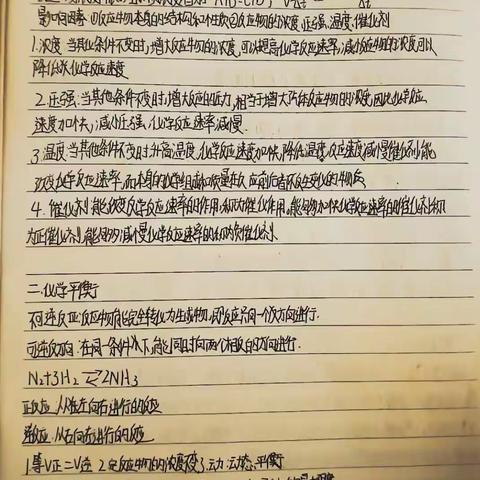 影响因素 ①反应物本身的结构和性质②反应物的浓度,压强,温度,催化剂
1.浓度 当其他条件不变时,增大反应物的浓度,可以提高化学反应速率,减小反应物的浓度可以
降低化学反应速度
2.压强:当其他条件不变时,增大反应的压力,相当于增大气体反应物的浓度,因此化学反应
速度加快,减小压强,化学反应速率减慢.
3.温度:当其他条件不变时,升高温度,化学反应速度加快,降低温度,反应速度减慢催化剂:能
改变化学反应速率,而本身的化学组成和质量在反应前后都不发生变化的物质
4.催化剂能改变反学反应速率的作用,称为催化作用,能够加快化学反应速率的催化剂称
为正催化剂,能够减慢化学反应速率的称为负催化剂.
二.化学平衡
不可逆反应:反应物能完全转化为生成物,即反应只向一个方向进行.
可逆反应:在同一条件下,能同时向两个相反的方向进行.
N₂+3H₂⇌2NH₃
正反应.从左向右进行的反应
逆反应.从右向左进行的反应
1.等V正=V逆 2.定反应物的浓度 3.动:动态平衡